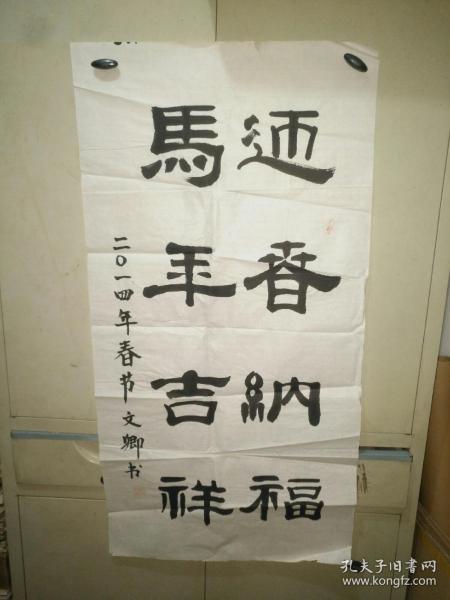 迊春納福
馬年吉祥
二〇一四年春节文卿书
孔夫子旧书网
www.kongfz.com